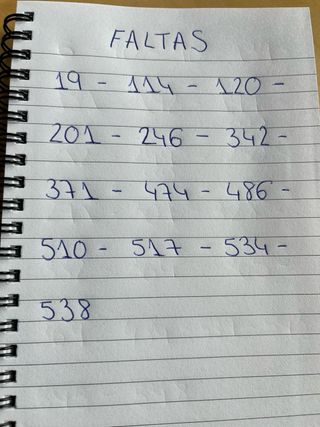 FALTAS
19 - 114 - 120 -
201 - 246 - 342 -
371 - 474 - 486 -
510 - 517 - 534 -
538